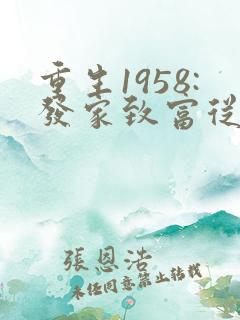 重生1958:
發家致富從
張恩浩
未經同意禁止轉載